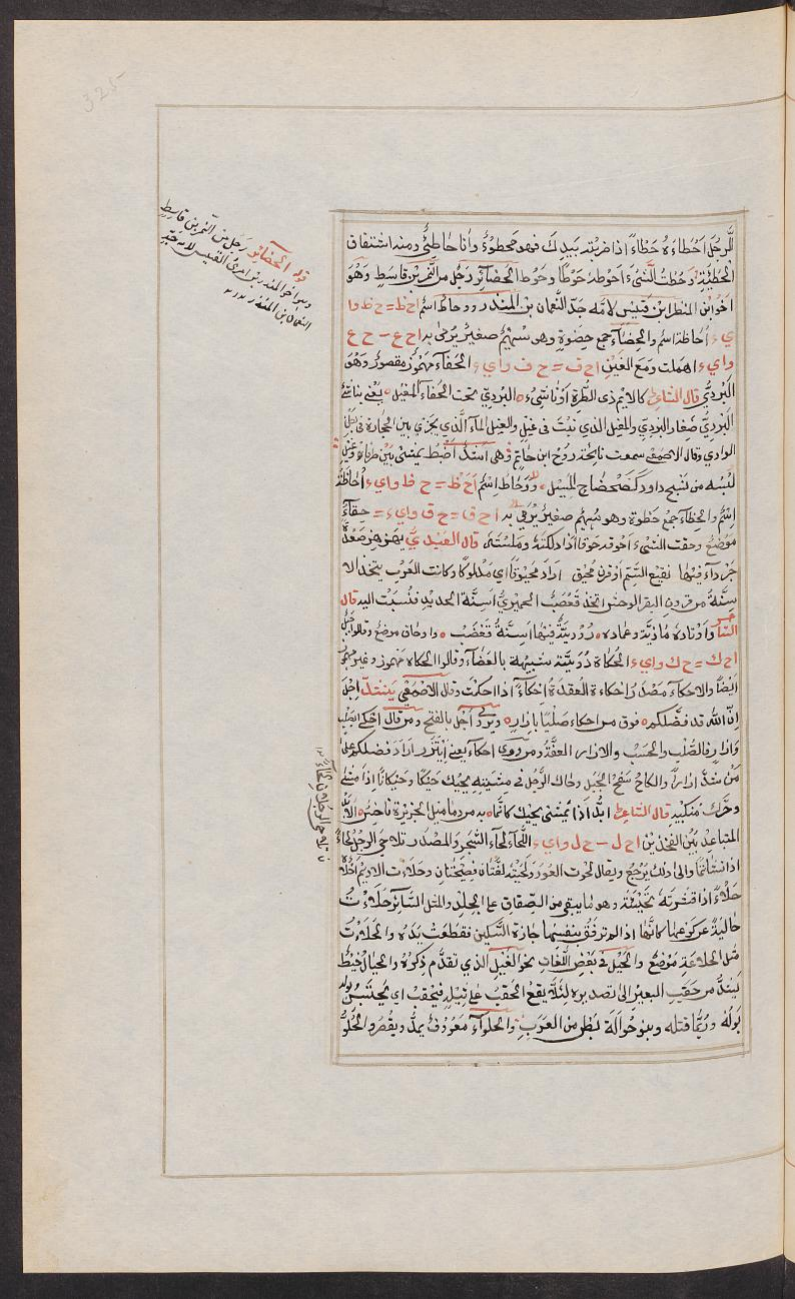 325
قوله الحضائر رجل من النمر بن قاسط
وهو اخو المنذر بن امرئ القيس لامه جد
النعمان بن المنذر
الرجل احطاءه حطاءً اذا ضربته بيدك فهو محطوءٌ وانا حاطئٌ ومنه اشتقاق
الحطيئة وحُطت الشئ احوطه حوطًا وحوط الحضائر رجل من النمر بن قاسط وهو
اخو ابن المنظر ابن قيس لامه جد النعمان بن المنذر وحاظ اسم احظ = ح ظ وا
ي ء احاظة اسم والحضاء جمع حضوة وهو سهم صغير يرمى به اح ع – ح ع
واي ء اهملت ومع الغين اح ف = ح ف واي ء الحفاء مهموز مقصور وهو
البردي قال الشاعر كالايم ذى الطرة او ناشئ البردي تحت الحفاء المغيل يعني بناشئ
البردي صغار البردي والمغيل الذي نبت في غيل والغيل الماء الذي يجري بين الحجارة في بطن
الوادي وقال الاصمعي سمعت نائحة روح ابن حاتم وهى اسد اضبط يمشى بين طرفاء وغيل
لبسه من نسج داود كضحضاح المسيل وحاظ اسم احظ = ح ظ واي ء احاظة
اسم والحظاء جمع حظوة وهو سهم صغير يرمى به اح ق = ح ق واي ء = حقاء
موضع وحقت الشئ احوقه حوقا اذا دلكته وملسته قال العبدي يهزهز صعدة
جرداء فيها نقيع السم او قرن محيق اراد محيوقا اي مدلوكا وكانت العرب يتخذ الا
سنة من قرون البقر الوحش اتخذ قعضب الحميري اسنة الحديد فنسبت اليه قال
الشاعر واوتاده ماذية وعماده ردينية فيها اسنة قعضب وحقا موضع وقالوا جبل
اح ك = ح ك واي ء الحكاة دويبة شبيهة بالعضاء وقالوا الحكاه مهموز وغير مهموز
ايضا والاحكاء مصدر احكاءة العقدة احكاءً اذا احكمت وقال الاصمعي ينشد اجل
ان الله قد فضلكم فوق من احكاء صلبا بازار ويروى اجل بالفتح ومن قال احكى
واذار فالصلب والحسب والازار العفة ومن روى احكاء يعني ايتزر اراد فضلكم على
من شد ازارا والكاح سفح الجبل وحاك الرجل في مشيته يحيك حيكا وحيكانا اذا مشى
وحرك منكبيه قال الشاعر ابد اذا يمشى يحيك كانما به من دماميل الجزيرة ناخس الابد
المتباعد بين الفخذين اح ل – ح ل واي ء اللحاء لحاء الشجر والمصدر تلاحى الرجل لحاءً
اذا تشاتما والى ذلك يرجع ويقال لحوت العود ولحيته لغتان فصيحتان وحلاءت الاديم احلاه
حلاءً اذا قشرته تحلئته وهو ما يبقى من الصفاق على الجلد والمثل السائر حلاءت
حالئة عن كوعها كانها اذا لم ترفق بنفسها جازة السكين فقطعت يده والحلاءت
مثل الحلاعة موضع والحيل في بعض اللغات نحو الغيل الذي تقدم ذكره والحيال خيط
يشد من حقب البعير الى تصديره لئلا يقع الحقب على ثيله فيحقب اي يحتبس بوله
بوله وربما قتله وبنو حوالة بطن من العرب والحلواء معروف يمد ويقصر والحلو